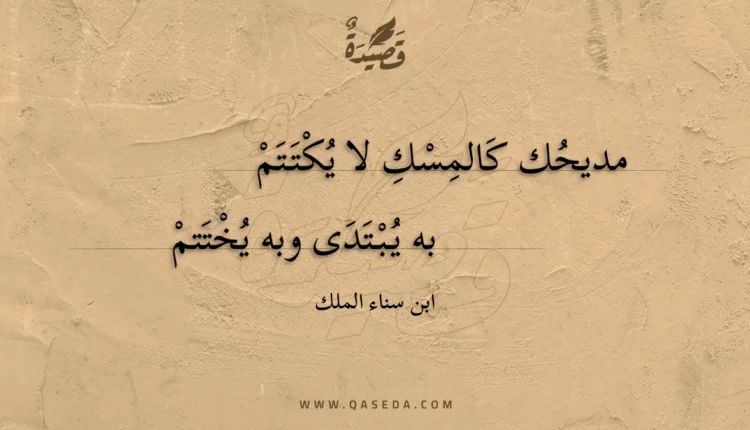 قَصِيدَةٌ
مديحُك كَالمِسْكِ لا يُكْتَتَمْ
به يُبْتَدَى وبه يُخْتَتمْ
ابن سناء الملك
WWW.QASEDA.COM